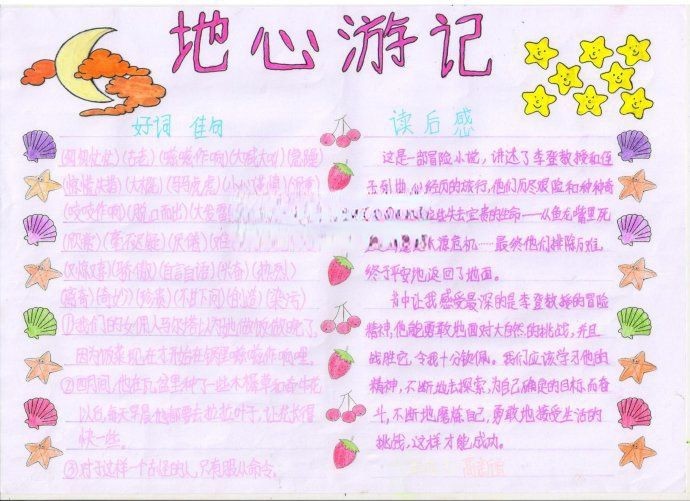 地心游记
好词 佳句
(古老)(嗞嗞作响)(大喊大叫)
(惊慌失措)(大褂)(马马虎虎)(小心谨慎)
(咬咬作响)(脱口而出)
(欣赏)(毫不迟疑)(厌倦)
(骄傲)(自言自语)(热烈)
(离奇)(奇妙)(珍贵)(不耻下问)(创造)(染污)
①我们的女佣人马尔塔以为她做饭做晚了,
因为饭菜现在才开始在锅里嗞嗞作响哩。
②四月间,他在瓦盆里种了一些木樨草和牵牛花
以后,每天早晨他都要去拉拉叶子,让花长得
快一些。
③对于这样一个古怪的人,只有服从命令。
读后感
这是一部冒险小说,讲述了李登教授和侄
子到地心经历的旅行,他们历尽艰险和种种奇
失去宝贵的生命——从鱼龙嘴里死
渡危机……最终他们排除万难,
终于平安地返回了地面。
书中让我感受最深的是李登教授的冒险
精神,他能勇敢地面对大自然的挑战,并且
战胜它,令我十分钦佩。我们应该学习他的
精神,不断地去探索,为自己确定的目标,而奋
斗,不断地磨炼自己,勇敢地接受生活的
挑战,这样才能成功。